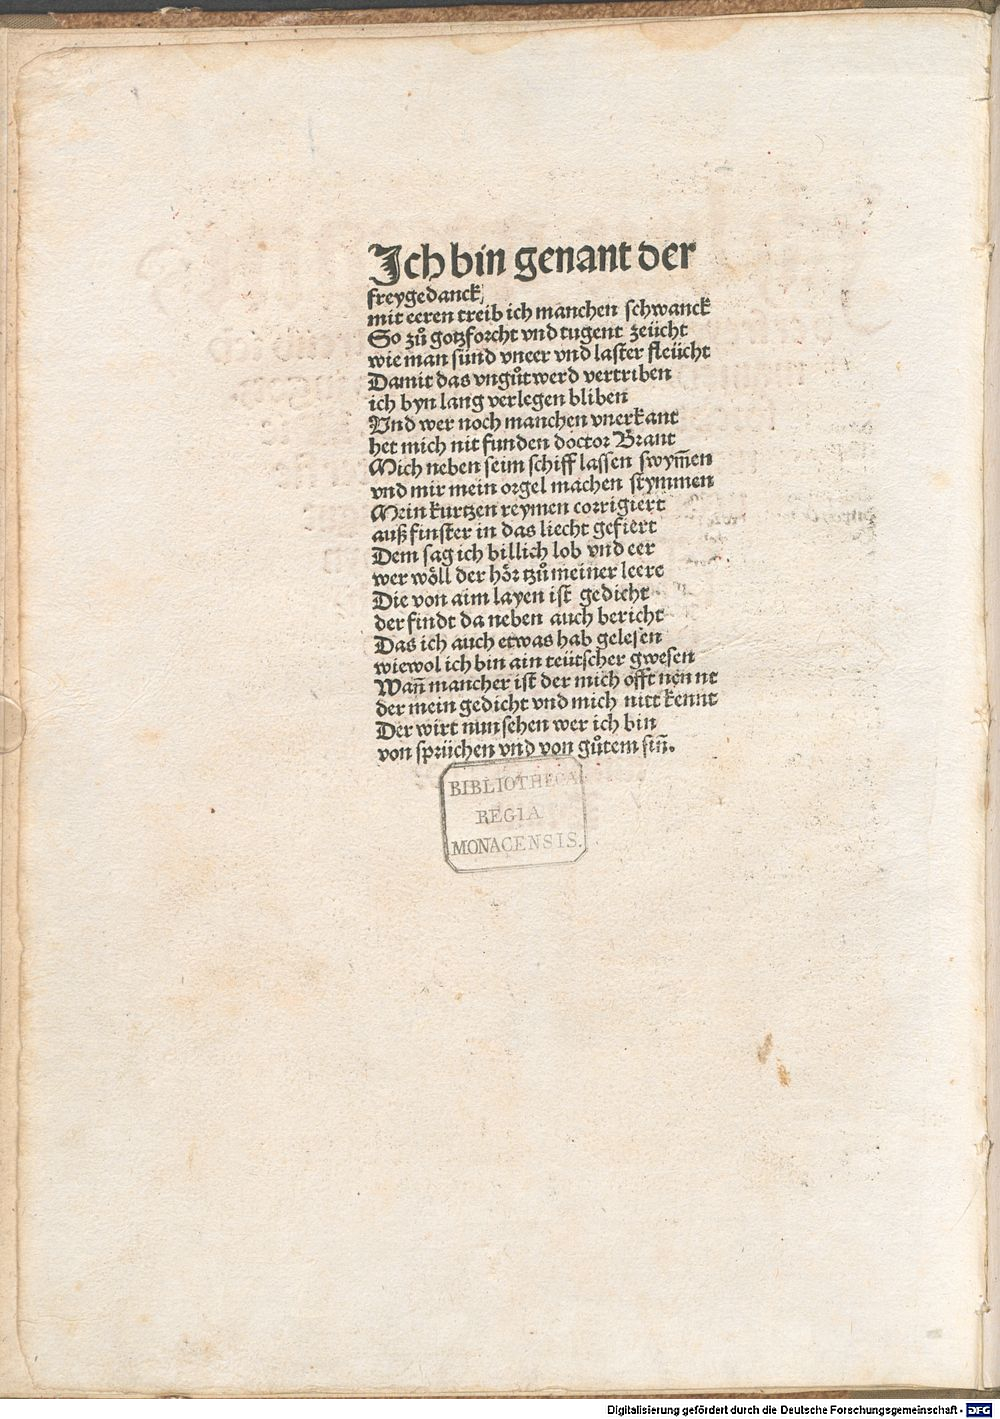 Ich bin genant der
freygedanck/
mit eeren treib ich manchen schwanck
So zů gotzforcht vnd tugent zeücht
wie man sünd vneer vnd laster fleücht
Damit das vngůt werd vertriben
ich byn lang verlegen bliben
Vnd wer noch manchen vnerkant
het mich nit funden doctor Brant
Mich neben seim schiff lassen swym̄en
vnd mir mein orgel machen stymmen
Mein kurtzen reymen corrigiert
auß finster in das liecht gefiert
Dem sag ich billich lob vnd eer
wer wöll der hör tzů meiner leere
Die von aim layen ist gedicht
der findt da neben auch bericht
Das ich auch etwas hab gelesen
wiewol ich bin ain teütscher gwesen
Wan̄ mancher ist der mich offt nen nt
der mein gedicht vnd mich nitt kennt
Der wirt nun sehen wer ich bin
von sprüchen vnd von gůtem sin̄.
BIBLIOTHECA
REGIA
MONACENSIS.
Digitalisierung gefördert durch die Deutsche Forschungsgemeinschaft - DFG